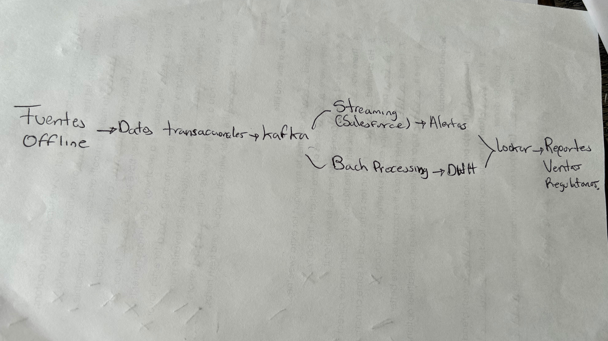 Fuentes
Offline
→ Datos transaccionales → Kafka
Streaming
(Salesforce) → Alertas
Bach Processing → DWH
Looker → Reportes
Ventas
Regulatorios